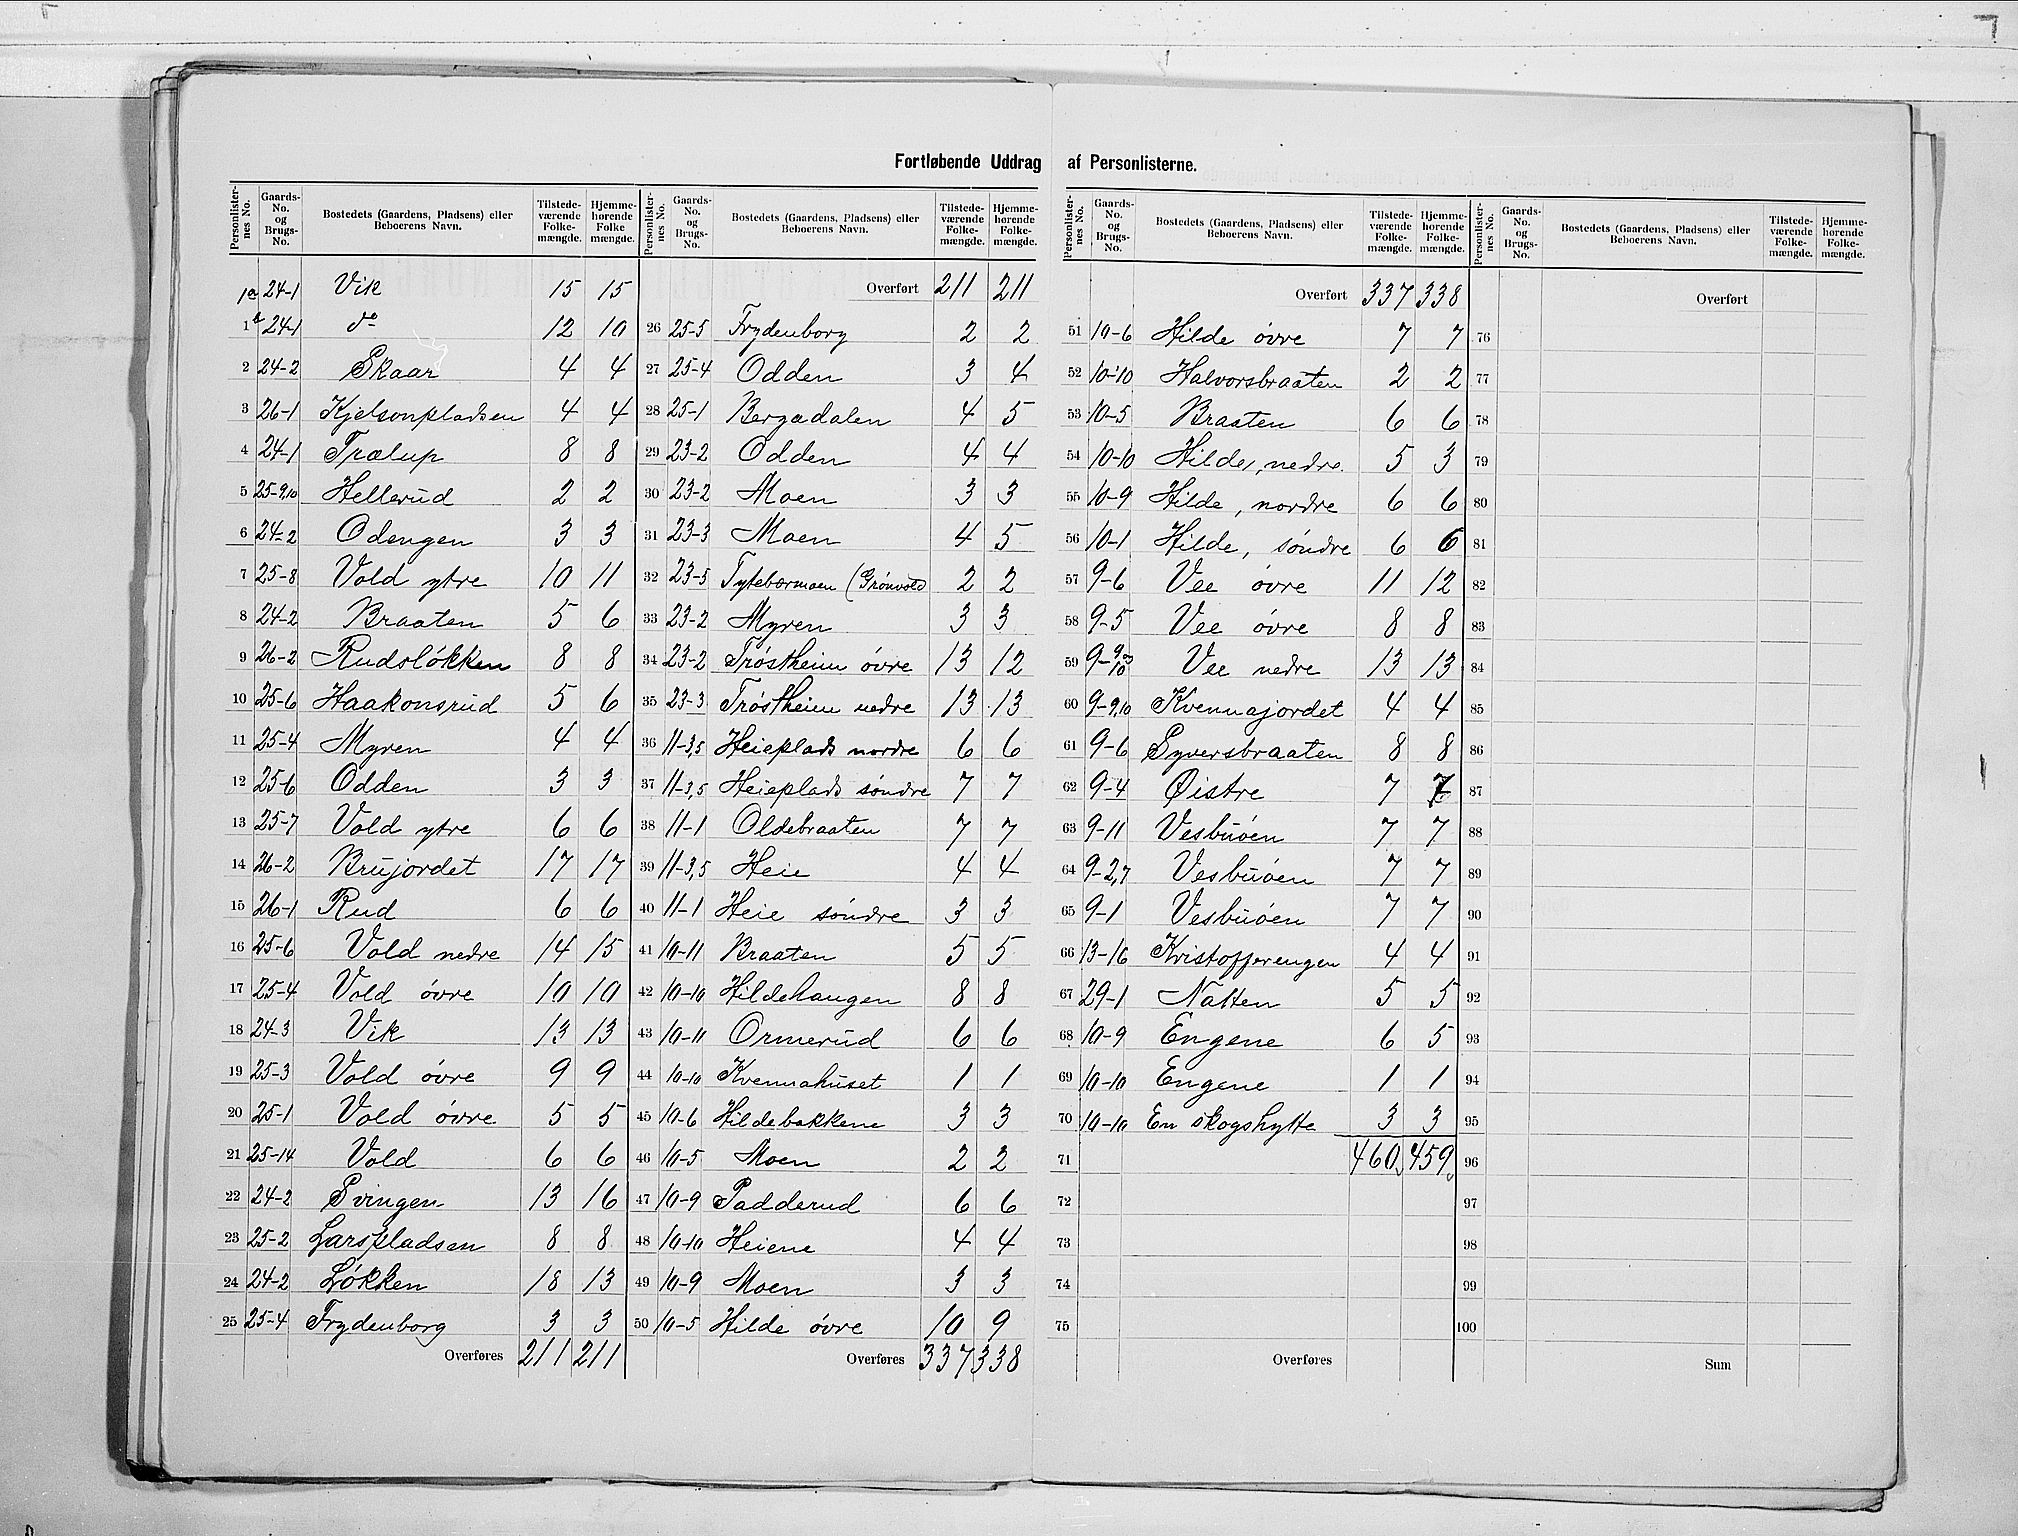 Fortløbende Uddrag af Personlisterne.
Personlister-nes No. | Gaards-No. og Brugs-No. | Bostedets (Gaardens, Pladsens) eller Beboerens Navn. | Tilstede-værende Folke-mængde. | Hjemme-hørende Folke mængde.
1a 24-1 Vik 15 15
1b 24-1 do 12 10
2 24-2 Skaar 4 4
3 26-1 Kjelsonpladsen 4 4
4 24-1 Trælup 8 8
5 25-9,10 Hellerud 2 2
6 24-2 Odengen 3 3
7 25-8 Vold ytre 10 11
8 24-2 Braaten 5 6
9 26-2 Rudsløkken 8 8
10 25-6 Haakonsrud 5 6
11 25-4 Myren 4 4
12 25-6 Odden 3 3
13 25-7 Vold ytre 6 6
14 26-2 Brujordet 17 17
15 26-1 Rud 6 6
16 25-6 Vold nedre 14 15
17 25-4 Vold øvre 10 10
18 24-3 Vik 13 13
19 25-3 Vold øvre 9 9
20 25-1 Vold øvre 5 5
21 25-14 Vold 6 6
22 24-2 Svingen 13 16
23 25-2 Larspladsen 8 8
24 24-2 Løkken 18 13
25 25-4 Frydenborg 3 3
Overføres 211 211
Personlister-nes No. | Gaards-No. og Brugs-No. | Bostedets (Gaardens, Pladsens) eller Beboerens Navn. | Tilstede-værende Folke-mængde. | Hjemme-hørende Folke-mængde.
Overført 211 211
26 25-5 Frydenborg 2 2
27 25-4 Odden 3 4
28 25-1 Bergadalen 4 5
29 23-2 Odden 4 4
30 23-2 Moen 3 3
31 23-3 Moen 4 5
32 23-5 Tytebærmoen (Grønvold 2 2
33 23-2 Myren 3 3
34 23-2 Trøstheim øvre 13 12
35 23-3 Trøstheim nedre 13 13
36 11-3,5 Heieplads nordre 6 6
37 11-3,5 Heieplads søndre 7 7
38 11-1 Oldebraaten 7 7
39 11-3,5 Heie 4 4
40 11-1 Heie søndre 3 3
41 10-11 Braaten 5 5
42 10-10 Hildehaugen 8 8
43 10-11 Ormerud 6 6
44 10-10 Kvennahuset 1 1
45 10-6 Hildebakkene 3 3
46 10-5 Moen 2 2
47 10-9 Padderud 6 6
48 10-10 Heiene 4 4
49 10-9 Moen 3 3
50 10-5 Hilde øvre 10 9
Overføres 337 338
Personlister-nes No. | Gaards-No. og Brugs-No. | Bostedets (Gaardens, Pladsens) eller Beboerens Navn. | Tilstede-værende Folke-mængde. | Hjemme-hørende Folke-mængde.
Overført 337 338
51 10-6 Hilde øvre 7 7
52 10-10 Halvorsbraaten 2 2
53 10-5 Braaten 6 6
54 10-10 Hilde, nedre. 5 3
55 10-9 Hilde, nordre 6 6
56 10-1 Hilde, søndre 6 6
57 9-6 Vee øvre 11 12
58 9-5 Vee øvre 8 8
59 9-9 og 10 Vee nedre 13 13
60 9-9,10 Kvennajordet 4 4
61 9-6 Syversbraaten 8 8
62 9-4 Øistre 7 7
63 9-11 Vesbuøen 7 7
64 9-2,7 Vesbuøen 7 7
65 9-1 Vesbuøen 7 7
66 13-16 Kristofferengen 4 4
67 29-1 Natten 5 5
68 10-9 Engene 6 5
69 10-10 Engene 1 1
70 10-10 En skogshytte 3 3
71 460 459
72
73
74
75
Overføres
Personlister-nes No. | Gaards-No. og Brugs-No. | Bostedets (Gaardens, Pladsens) eller Beboerens Navn. | Tilstede-værende Folke-mængde. | Hjemme-hørende Folke-mængde.
Overført
76
77
78
79
80
81
82
83
84
85
86
87
88
89
90
91
92
93
94
95
96
97
98
99
100
Sum